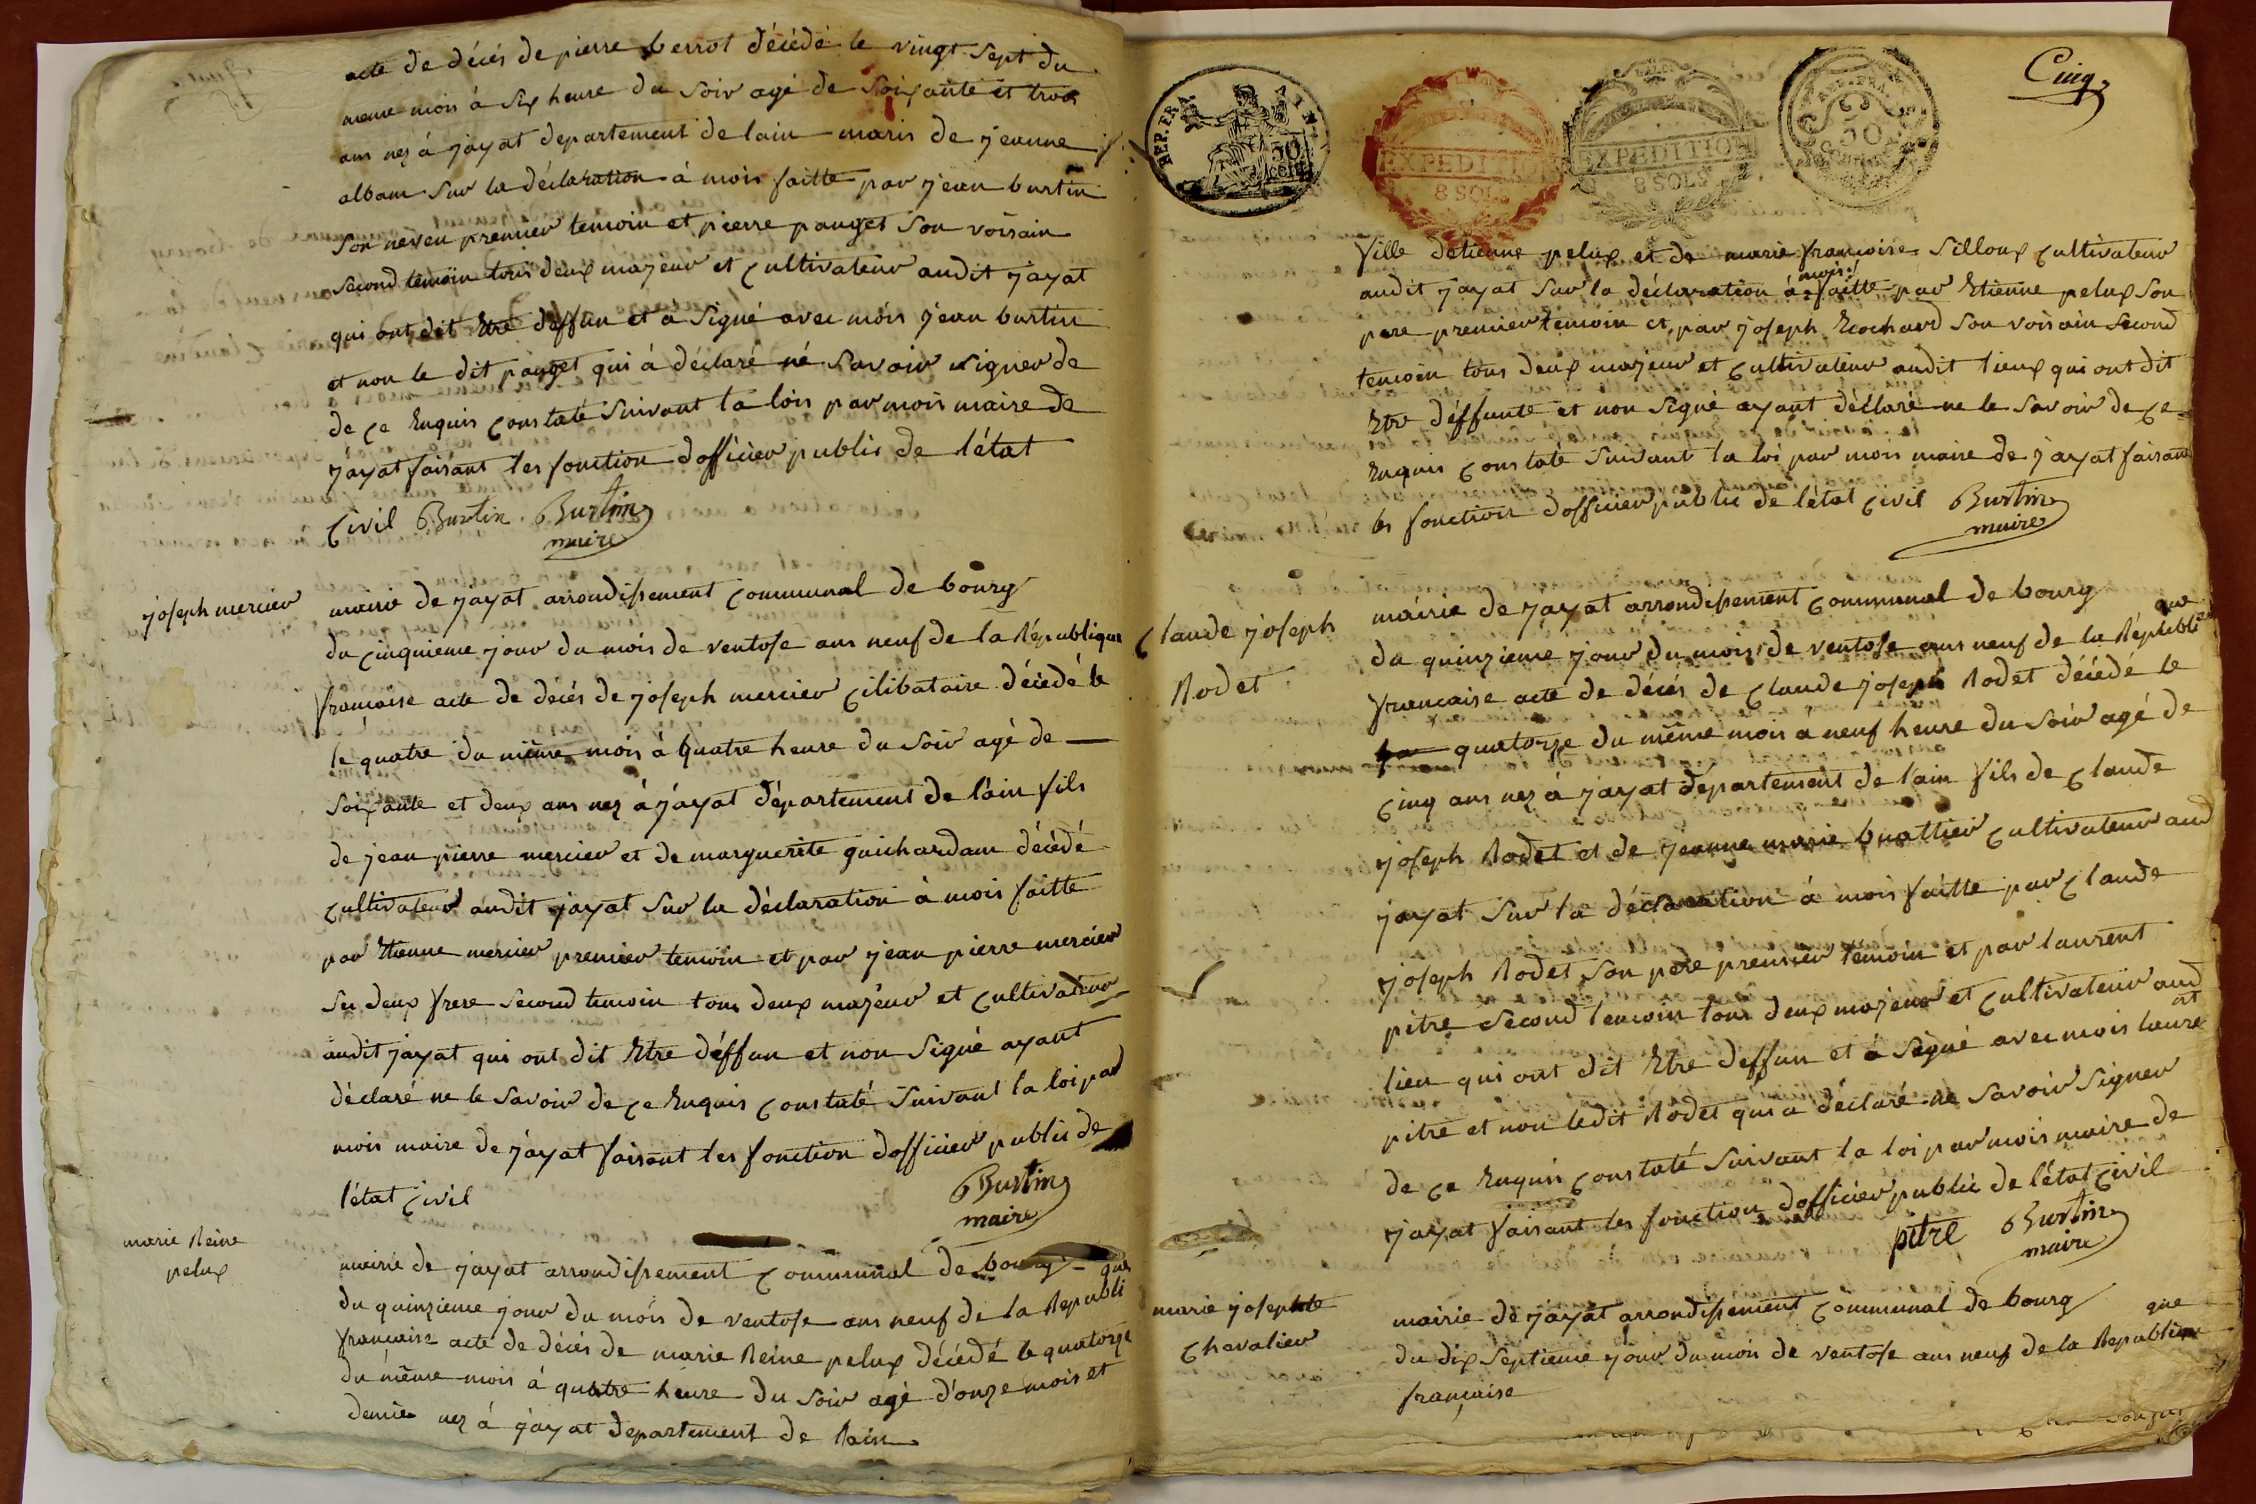 acte de décés de pierre berrot décédé le vingt sept du
meme mois à six heure du soir agé de soixante et trois
ans nez à jayat departement de lain maris de jeanne
alban sur la déclaration à mois faitte par jean burtin
son neveu premier temoin et pierre pauget son voisain
second temoin tous deux majeur et cultivateur audit jayat
qui ont dit Etre deffun et a signé avec mois jean burtin
et non le dit pauget qui à déclaré né savoir signer de
de ce Requis constaté suivant la lois par mois maire de
jayat faisant les fonction d'officier public de létat
civil Burtin Burtin
maire
joseph mercier
mairie de jayat arrondissement communal de bourg
du cinquieme jour du mois de ventose ans neuf de la République
françoise acte de décés de joseph mercier cilibataire décédé le
le quatre du même mois à quatre heure du soir agé de
soixante et deux ans nez à jayat département de l'ain fils
de jean pierre mercier et de marguerite guichardan décédé
cultivateur audit jayat sur la déclaration à mois faitte
par Etienne mercier premier temoin et par jean pierre mercier
ses deux frere second temoin tous deux majeur et cultivateur
audit jayat qui ont dit Etre déffun et non signé ayant
déclaré ne le savoir de ce Requis constaté suivant la loi par
mois maire de jayat faisant les fonction d'officier public de
létat civil
Burtin
maire
marie Reine
pelux
mairie de jayat arrondissement communal de bourg
du quinzieme jour du mois de ventose ans neuf de la Republi que
française acte de décés de marie Reine pelux décédé le quatorze
du même mois à quatre heure du soir agé d'onze mois et
demie nez à jayat departement de lain
Cinq
REP. FRA
50
cent
EXPEDITION
8 SOLS
EXPEDITION
8 SOLS
REP. FRA.
50
fille detienne pelux et de marie françoise silloux cultivateur
audit jayat sur la déclaration à mois faitte par Etienne pelux son
pere premier temoin et par joseph Rochard son voisain second
temoin tous deux majeur et cultivateur audit lieux qui ont dit
Etre déffunte et non signé ayant déclaré ne le savoir de ce
Requis constate suivant la loi par mois maire de jayat faisant
les fonction d'officier public de létat civil Burtin
maire
Claude joseph
Rodet
mairie de jayat arrondissement communal de bourg
du quinzieme jour du mois de ventose ans neuf de la République
française acte de décés de Claude joseph Rodet décédé le
quatorze du même mois à neuf heure du soir agé de
cinq ans nez à jayat département de l'ain fils de Claude
joseph Rodet et de jeanne marie buattier cultivateur aud
jayat sur la déclaration à mois faitte par Claude
joseph Rodet son pere premier temoin et par laurent
pitre second temoin tous deux majeur et cultivateur aud
lieu qui ont dit Etre deffun et à signé avec mois laurent
pitre et non ledit Rodet qui a déclaré ne savoir signer
de ce Requis constaté suivant la loi par mois maire de
jayat faisant les fonction d'officier public de létat civil
pitre Burtin
maire
marie josephte
Chevalier
mairie de jayat arrondissement communal de bourg
du dix septieme jour du mois de ventose ans neuf de la Republique
française